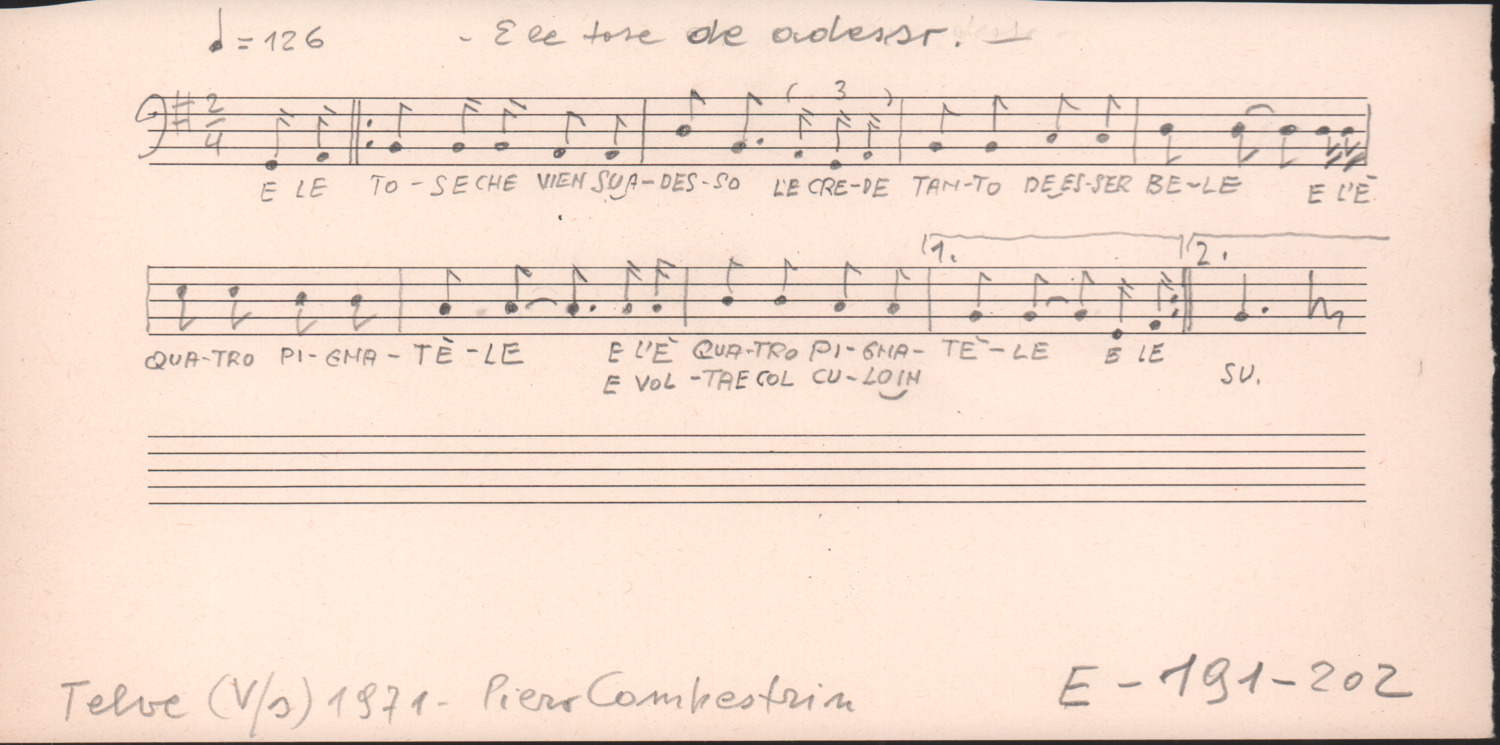 ♩= 126 - E le tose de adesso. -
2/4 ( 3 )
E LE TO - SE CHE VIEN SU A - DES - SO L'E CRE - DE TAN - TO DE ES - SER BE - LE E L'È
1. 2.
QUA - TRO PI - GNA - TÈ - LE E L'È QUA - TRO PI - GNA - TÈ - LE E LE
E VOL - TAE COL CU - LO IN SU.
Telve (V/s) 1971 - Piero
E - 191 - 202